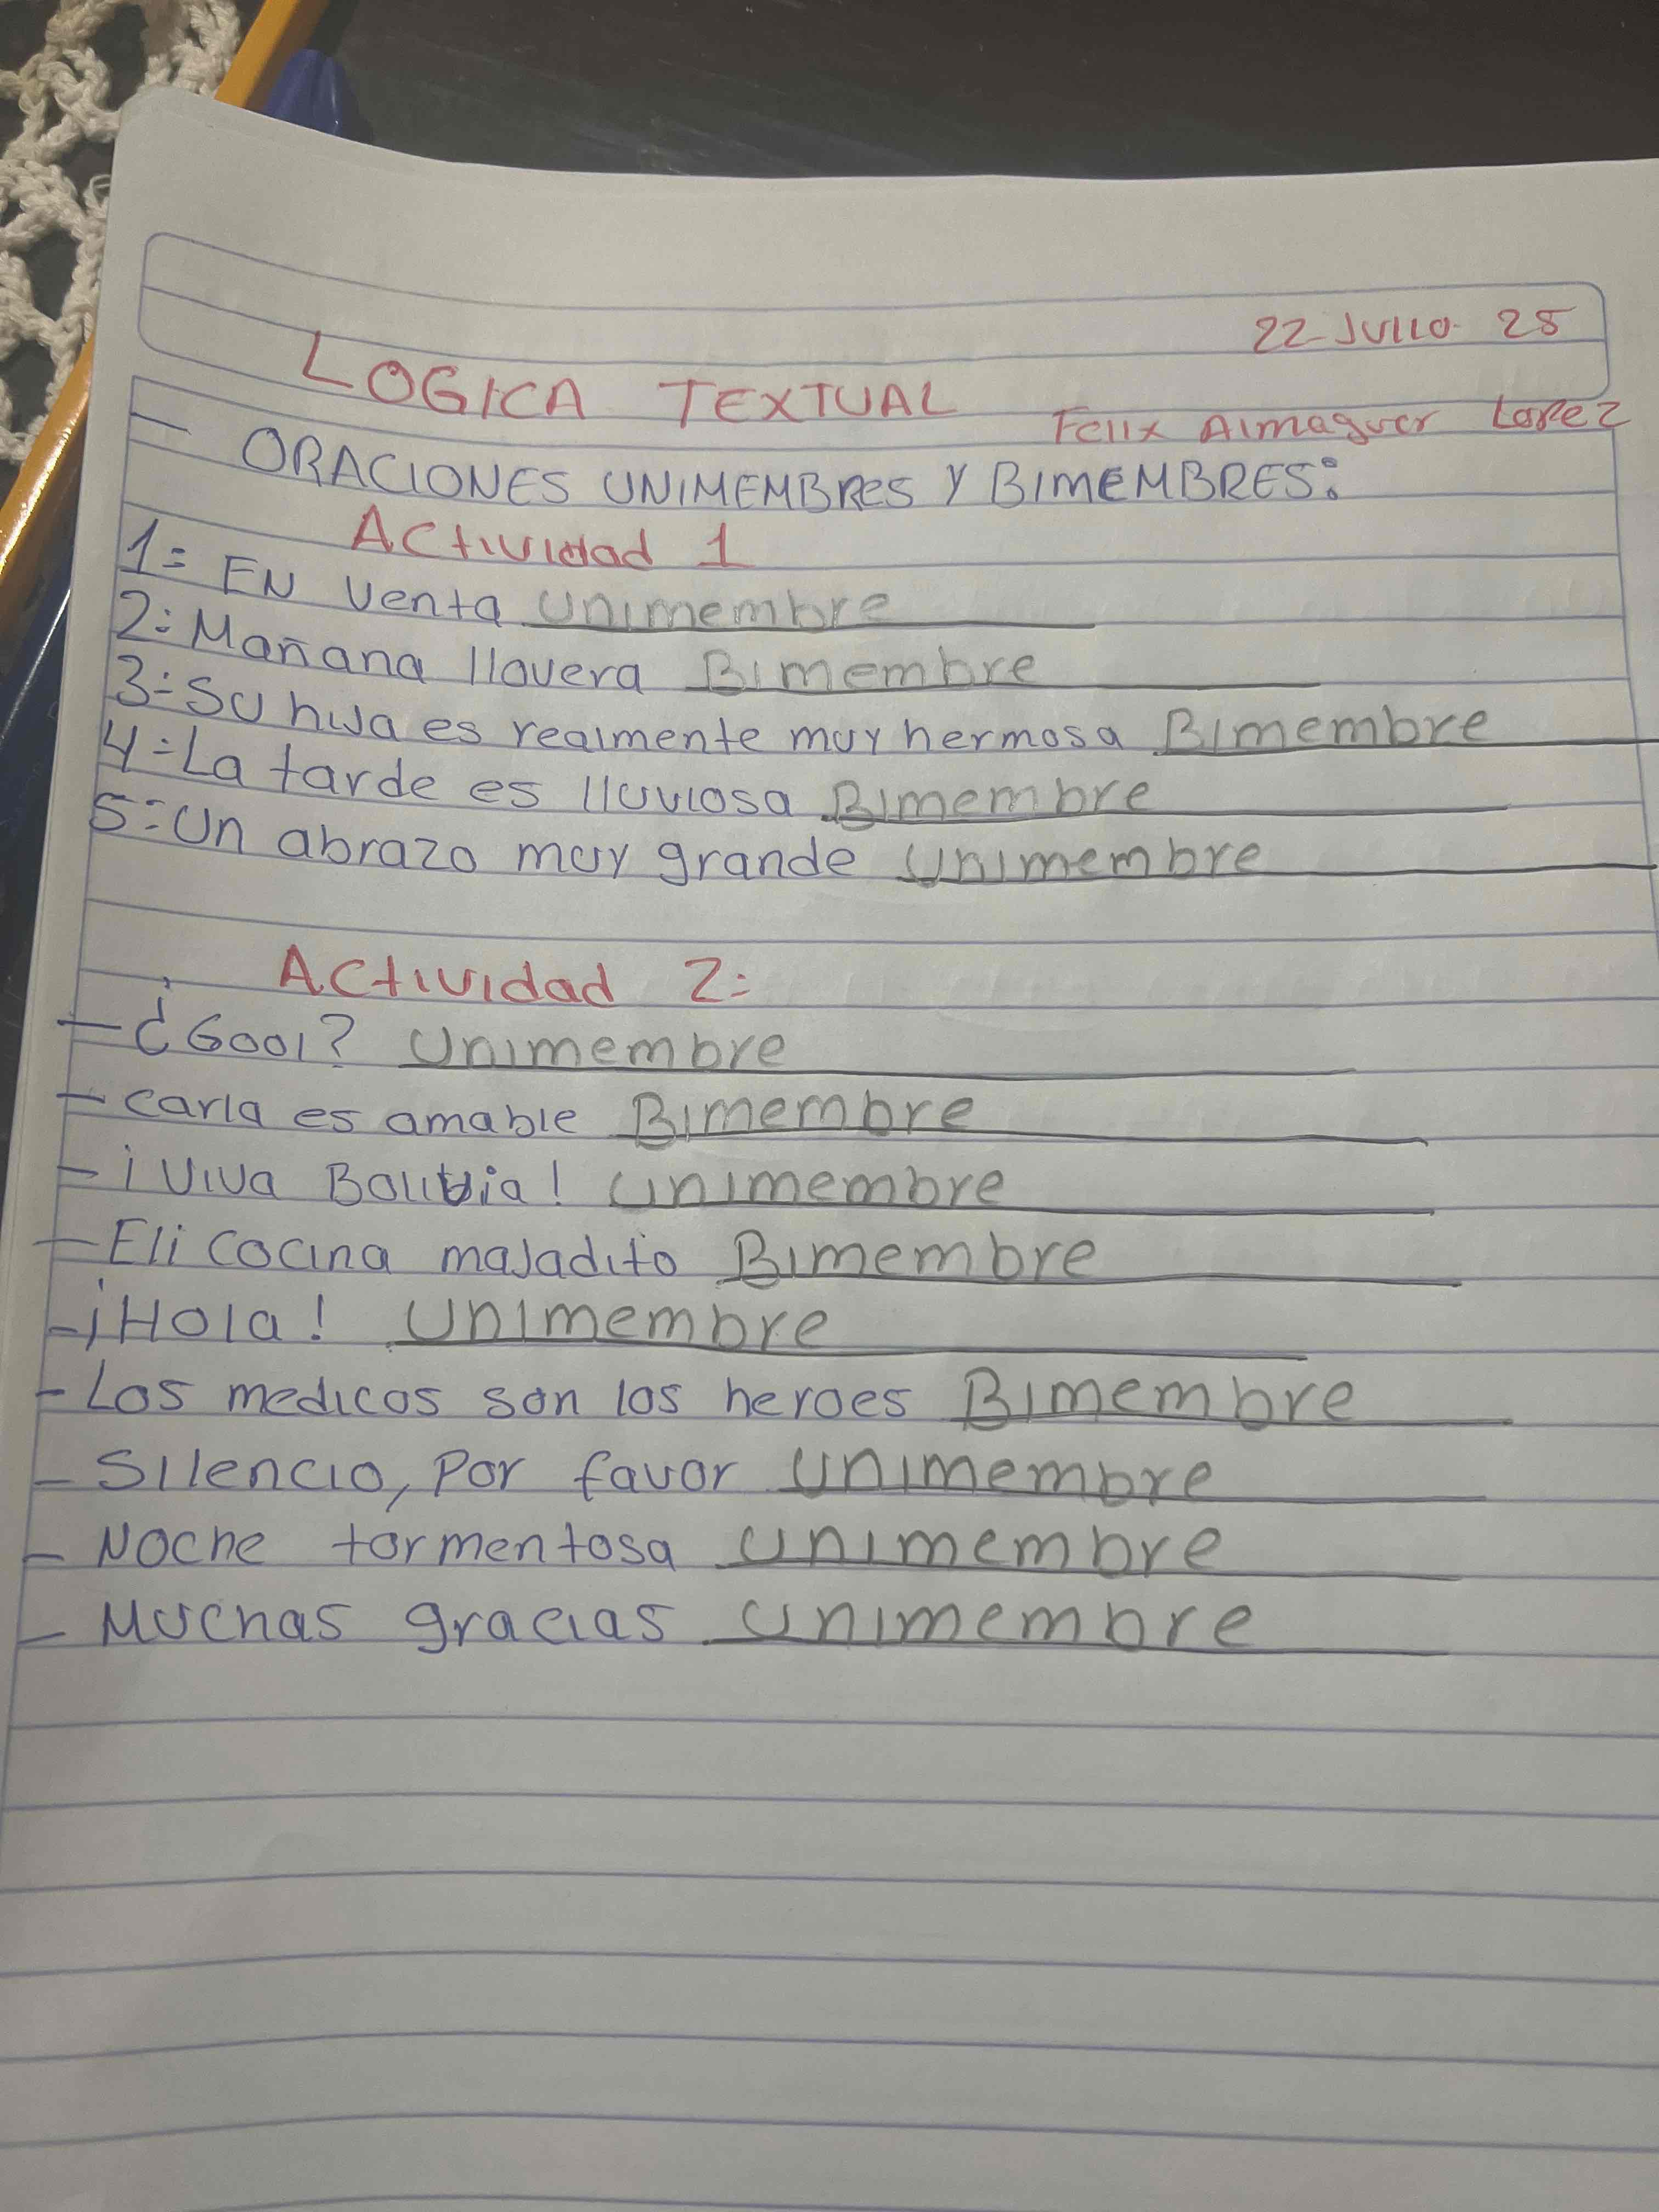 22-JULIO-25
LOGICA TEXTUAL
Felix Almaguer Lopez
- ORACIONES UNIMEMBRES Y BIMEMBRES:
Actividad 1
1= EN Venta Unimembre
2= Mañana llovera Bimembre
3= SU hija es realmente muy hermosa Bimembre
4= La tarde es lluviosa Bimembre
5= Un abrazo muy grande Unimembre
Actividad 2=
- ¿Gool? Unimembre
- carla es amable Bimembre
- ¡Viva Bolivia! Unimembre
- Eli cocina majadito Bimembre
- ¡Hola! Unimembre
- Los medicos son los heroes Bimembre
- Silencio, Por favor Unimembre
- Noche tormentosa Unimembre
- Muchas gracias Unimembre